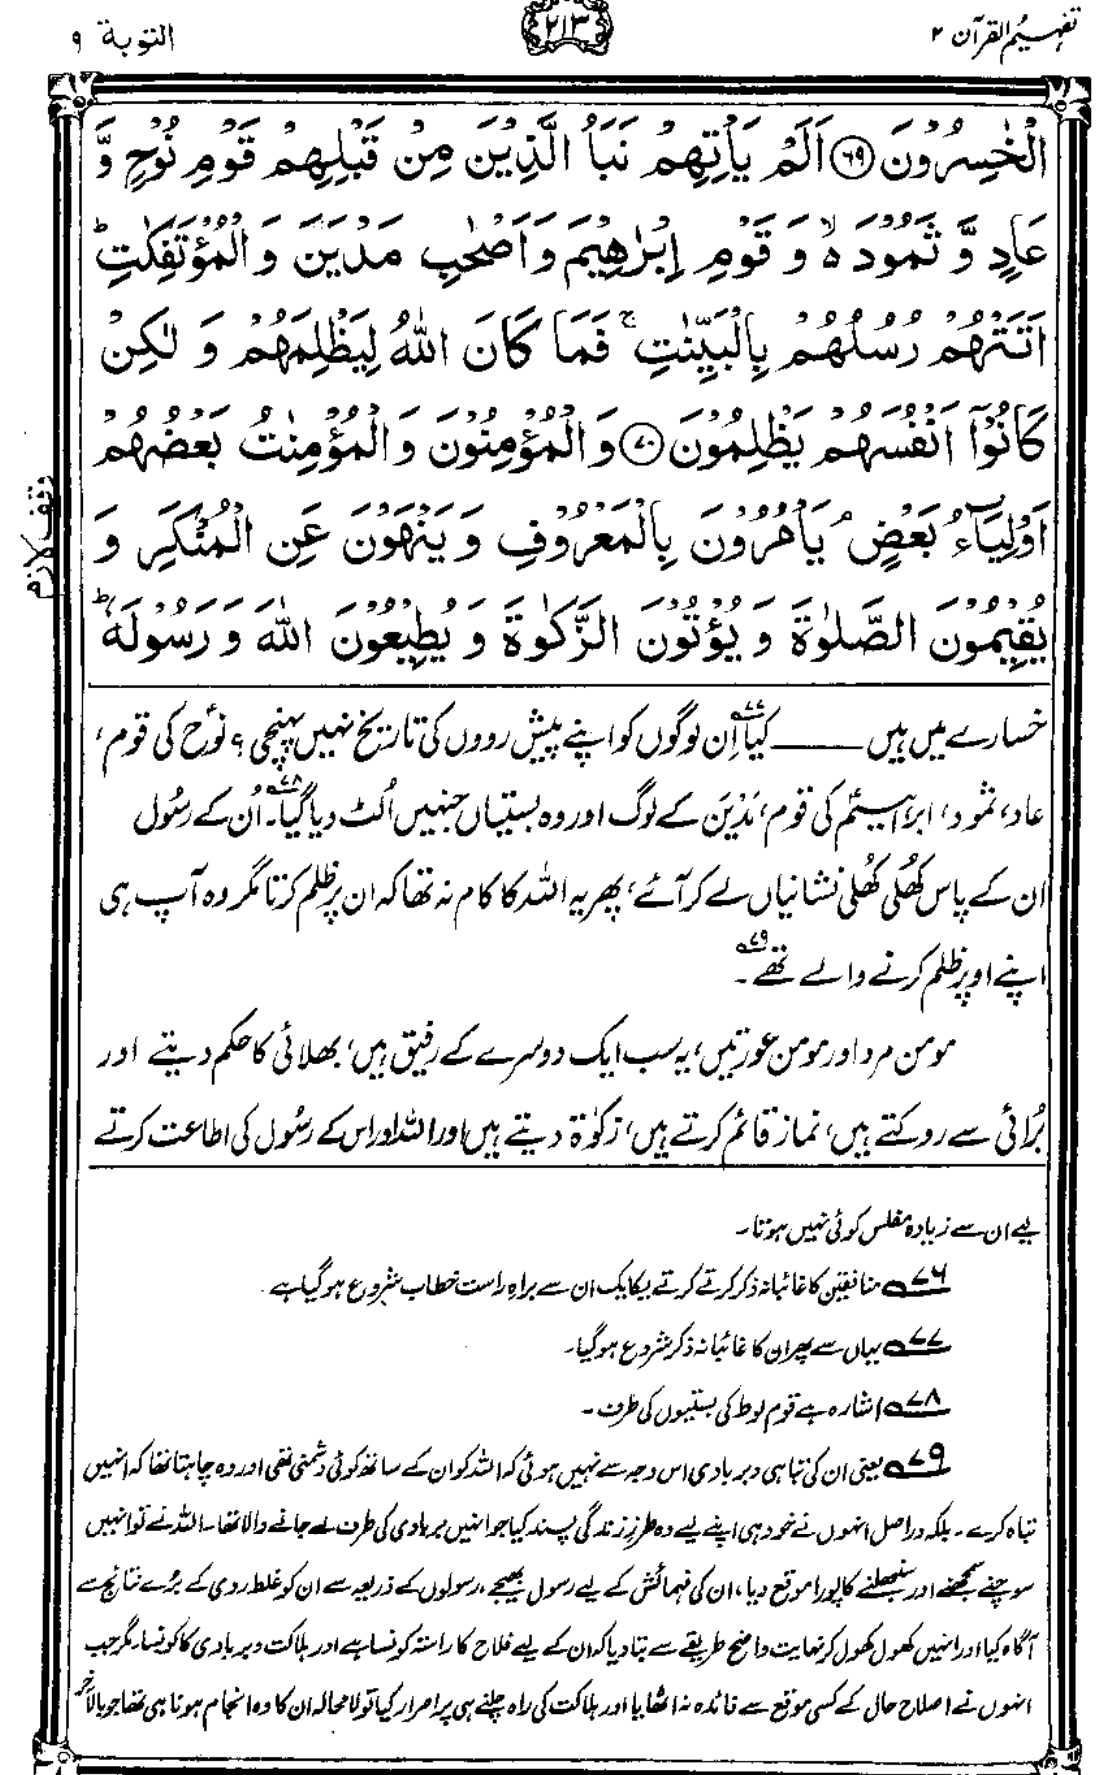 تفہیم القرآن ۲
۲۱۳
التوبة ۹
الْخٰسِرُوْنَ ﴿۶۹﴾ اَلَمْ يَاْتِهِمْ نَبَاُ الَّذِيْنَ مِنْ قَبْلِهِمْ قَوْمِ نُوْحٍ وَّ
عَادٍ وَّ ثَمُوْدَ ۙ وَ قَوْمِ اِبْرٰهِيْمَ وَ اَصْحٰبِ مَدْيَنَ وَ الْمُؤْتَفِكٰتِ ؕ
اَتَتْهُمْ رُسُلُهُمْ بِالْبَيِّنٰتِ ۚ فَمَا كَانَ اللّٰهُ لِيَظْلِمَهُمْ وَ لٰكِنْ
كَانُوْۤا اَنْفُسَهُمْ يَظْلِمُوْنَ ﴿۷۰﴾ وَ الْمُؤْمِنُوْنَ وَ الْمُؤْمِنٰتُ بَعْضُهُمْ
اَوْلِيَآءُ بَعْضٍ ۘ يَاْمُرُوْنَ بِالْمَعْرُوْفِ وَ يَنْهَوْنَ عَنِ الْمُنْكَرِ وَ
يُقِيْمُوْنَ الصَّلٰوةَ وَ يُؤْتُوْنَ الزَّكٰوةَ وَ يُطِيْعُوْنَ اللّٰهَ وَ رَسُوْلَهٗ ؕ
وقف لازم
خسارے میں ہیں ——— کیا۷۷ اِن لوگوں کو اپنے پیش رووں کی تاریخ نہیں پہنچی؟ نوحؑ کی قوم،
عاد، ثمود، ابراہیمؑ کی قوم، مَدْیَن کے لوگ اور وہ بستیاں جنہیں اُلٹ دیا گیا۔۷۸ اُن کے رسُول
ان کے پاس کھُلی کھُلی نشانیاں لے کر آئے، پھر یہ اللہ کا کام نہ تھا کہ ان پر ظلم کرتا مگر وہ آپ ہی
اپنے اوپر ظلم کرنے والے تھے۔۷۹
مومن مرد اور مومن عورتیں، یہ سب ایک دوسرے کے رفیق ہیں، بھلائی کا حکم دیتے اور
بُرائی سے روکتے ہیں، نماز قائم کرتے ہیں، زکوٰۃ دیتے ہیں اور اللہ اور اس کے رسُول کی اطاعت کرتے
لیے ان سے زیادہ مفلس کوئی نہیں ہوتا۔
۷۶ منافقین کا غائبانہ ذکر کرتے کرتے یکایک ان سے براہِ راست خطاب شروع ہو گیا ہے۔
۷۷ یہاں سے پھر ان کا غائبانہ ذکر شروع ہو گیا۔
۷۸ اشارہ ہے قوم لوط کی بستیوں کی طرف۔
۷۹ یعنی ان کی تباہی و بربادی اس وجہ سے نہیں ہوئی کہ اللہ کو ان کے ساتھ کوئی دشمنی تھی اور وہ چاہتا تھا کہ انہیں
تباہ کرے۔ بلکہ دراصل انہوں نے خود ہی اپنے لیے وہ طرزِ زندگی پسند کیا جو انہیں بربادی کی طرف لے جانے والا تھا۔ اللہ نے تو انہیں
سوچنے سمجھنے اور سنبھلنے کا پورا موقع دیا، ان کی فہمائش کے لیے رسول بھیجے، رسولوں کے ذریعہ سے ان کو غلط روی کے بُرے نتائج سے
آگاہ کیا اور انہیں کھول کھول کر نہایت واضح طریقے سے بتا دیا کہ ان کے لیے فلاح کا راستہ کونسا ہے اور ہلاکت و بربادی کا کونسا۔ مگر جب
انہوں نے اصلاح حال کے کسی موقع سے فائدہ نہ اٹھایا اور ہلاکت کی راہ چلنے ہی پر اصرار کیا تو لامحالہ ان کا وہ انجام ہونا ہی تھا جو بالآخر